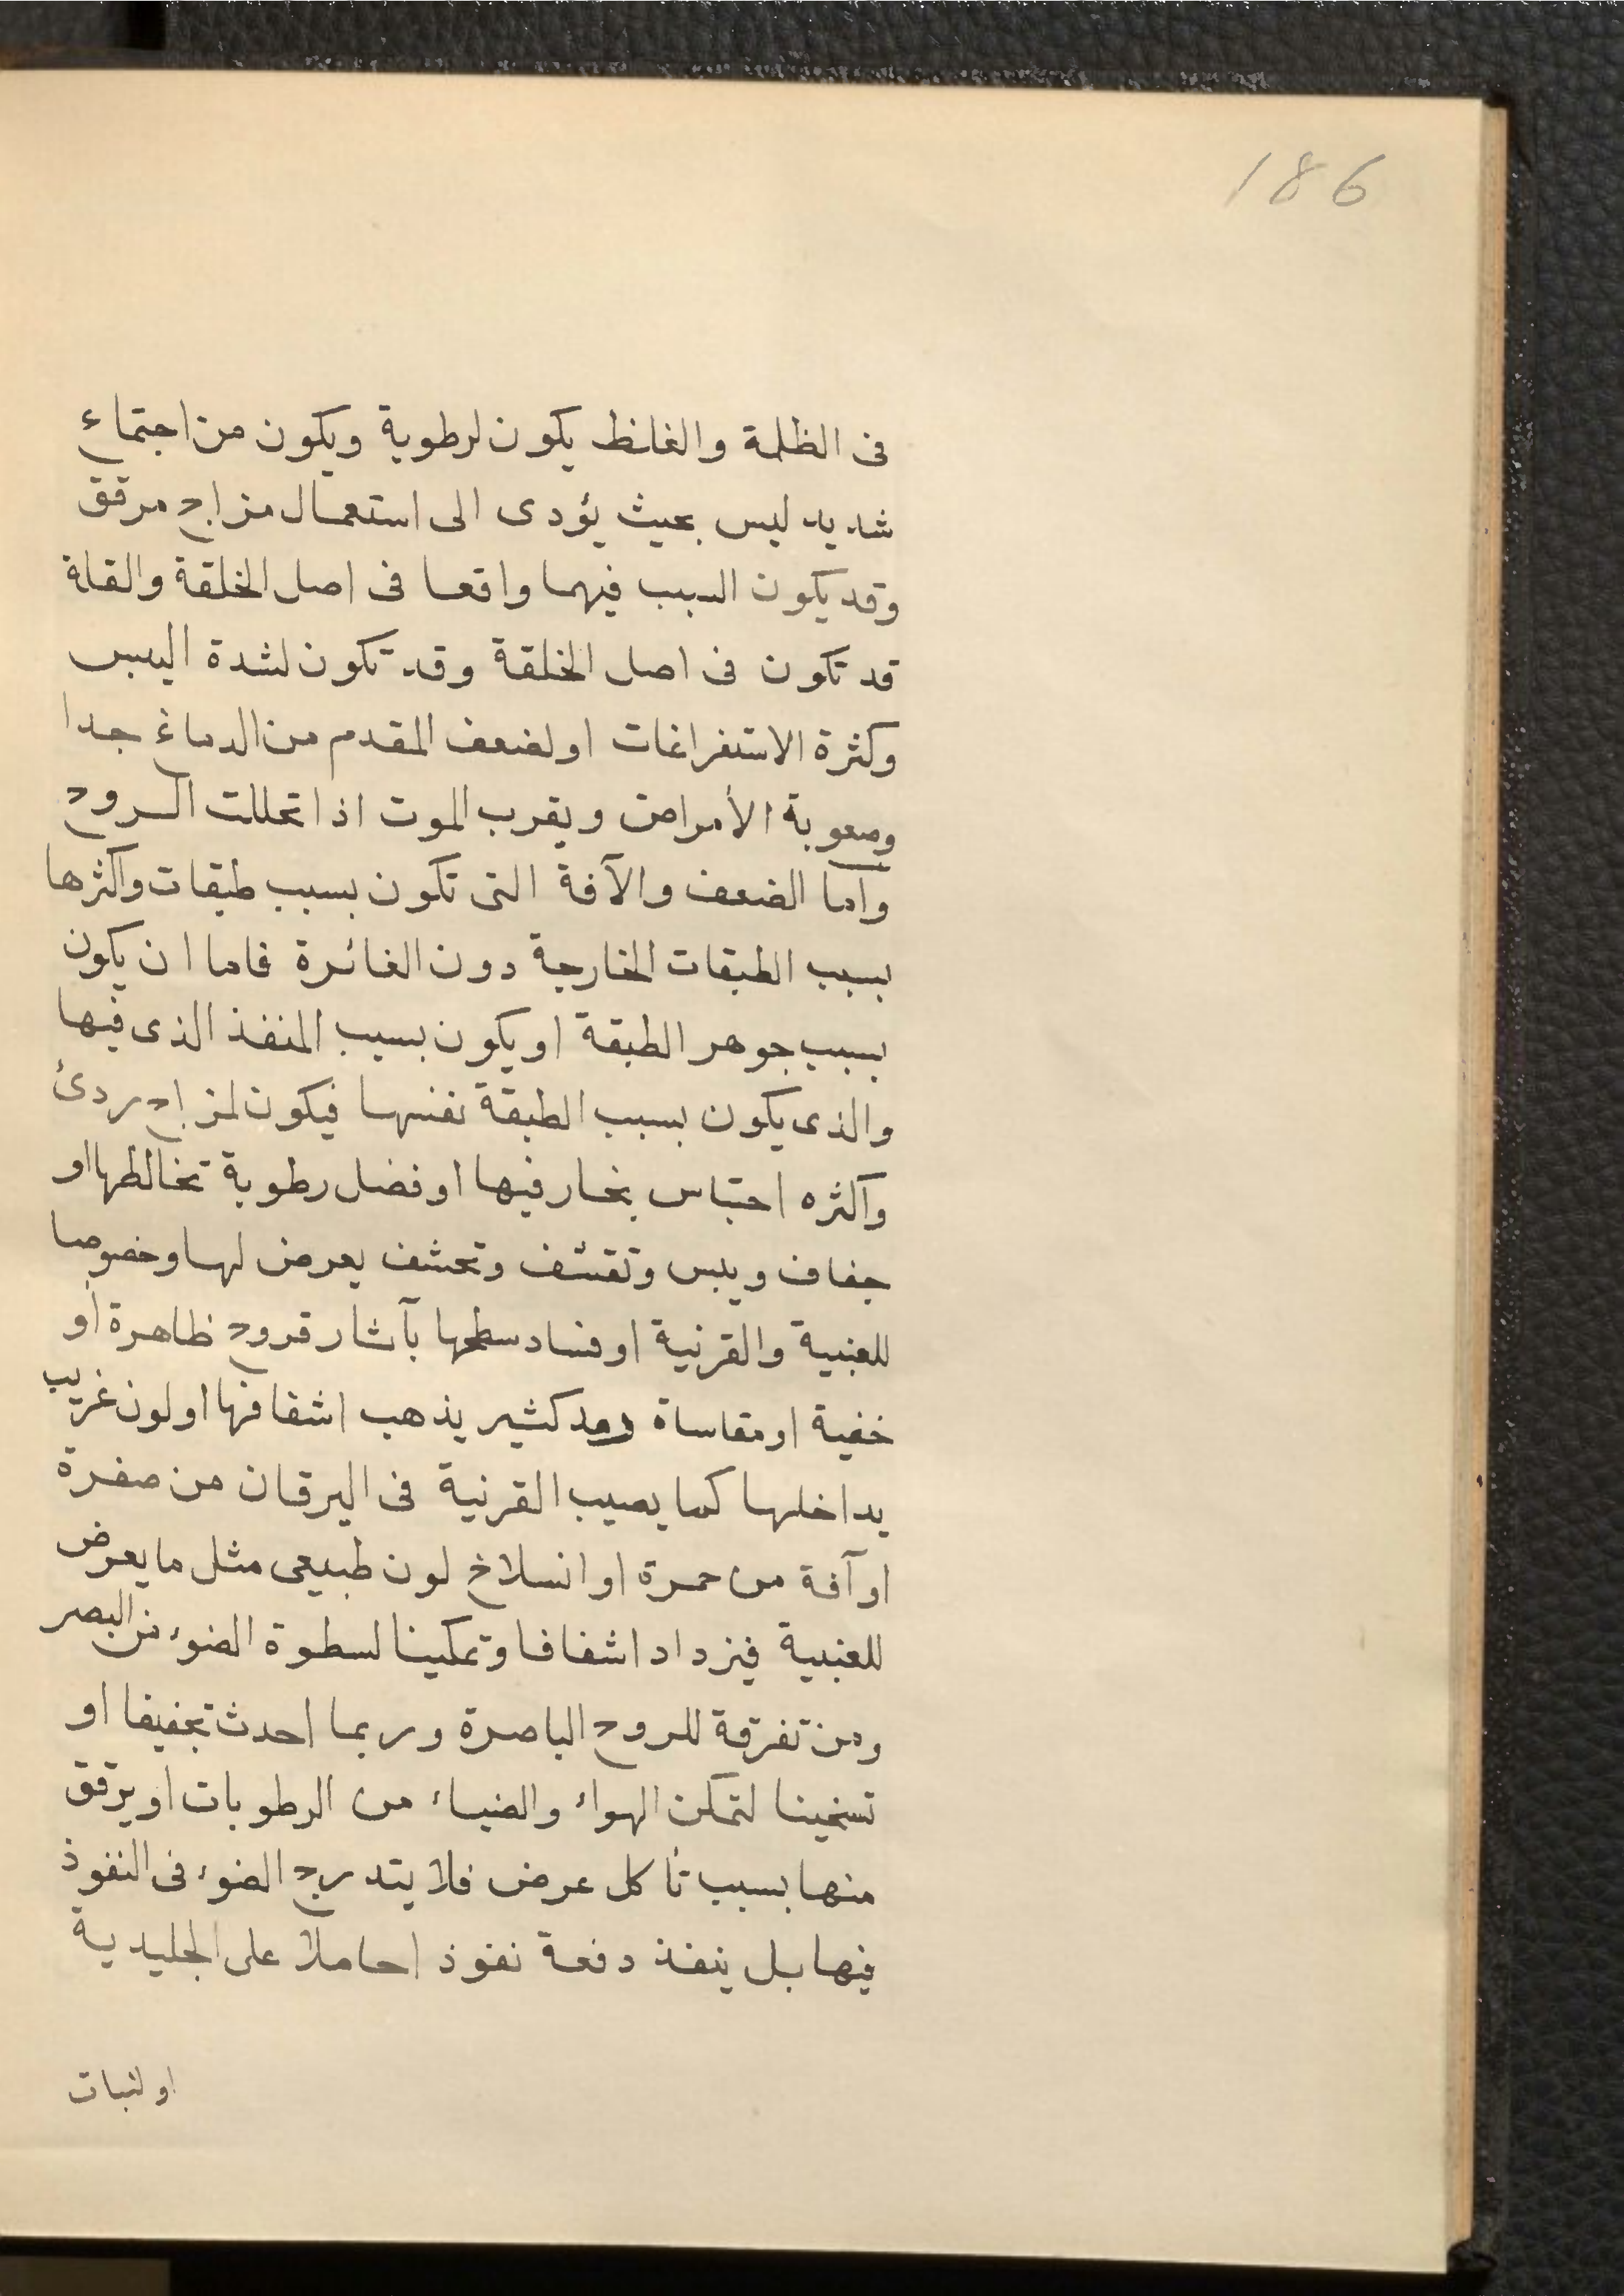 186
فى الظلمة والغلظ يكون لرطوبة ويكون من اجتماع
شديد ليس بحيث يؤدى الى استعمال مزاج مرقق
وقد يكون السبب فيهما واقعا فى اصل الخلقة والقلة
قد تكون فى اصل الخلقة وقد تكون لشدة اليبس
وكثرة الاستفراغات او لضعف المقدم من الدماغ جدا
وصعوبة الأمراض ويقرب الموت اذا تحللت الروح
واما الضعف والآفة التى تكون بسبب طبقات واكثرها
بسبب الطبقات الخارجة دون الغائرة فاما ان يكون
بسبب جوهر الطبقة او يكون بسبب المنفذ الذى فيها
والذى يكون بسبب الطبقة نفسها فيكون لمزاج ردئ
واكثره احتباس بخار فيها او فضل رطوبة تخالطها او
جفاف ويبس وتقشف وتحشف يعرض لها وخصوصا
للعنبية والقرنية او فساد سطحها بآثار قروح ظاهرة او
خفية او مقاساة رمد كثير يذهب اشفافها او لون غريب
يداخلها كما يصيب القرنية فى اليرقان من صفرة
او آفة من حمرة او انسلاخ لون طبيعى مثل ما يعرض
للعنبية فيزداد اشفافا وتمكينا لسطوة الضوء من البصر
ومن تفرقة للروح الباصرة وربما احدث تجفيفا او
تسخينا لتمكن الهواء والضياء من الرطوبات او يرقق
منها بسبب تأكل عرض فلا يتدرج الضوء فى النفوذ
فيها بل ينفذ دفعة نفوذ احاملا على الجليدية
او لنبات